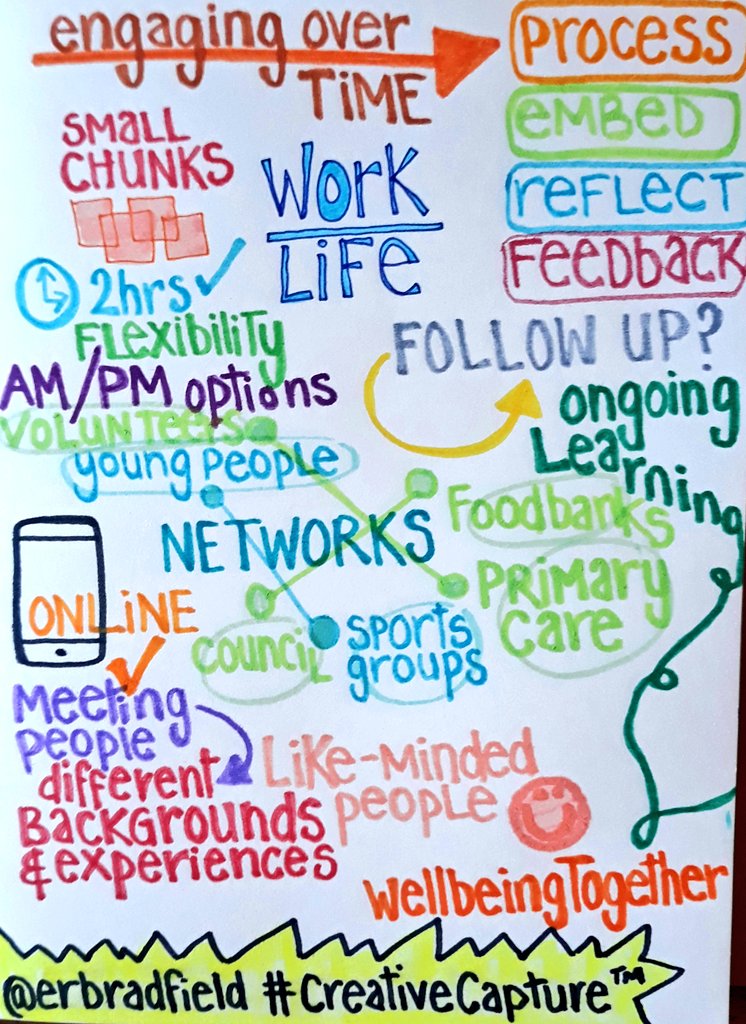 engaging over
TiME
PROCESS
EMBED
REFLECT
FEEDBACK
SMALL
CHUNKS
WORK
LiFE
2hrs
FLEXIBILITY
AM/PM options
VOLUNTEERS
young people
FOLLOW UP?
ongoing
Learning
NETWORKS
Foodbanks
PRIMARY
care
ONLiNE
COUNCIL
sports
groups
Meeting
people
different
Backgrounds
& experiences
LiKe-MiNDeD
people
wellbeingTogether
@erbradfield #CreativeCapture™